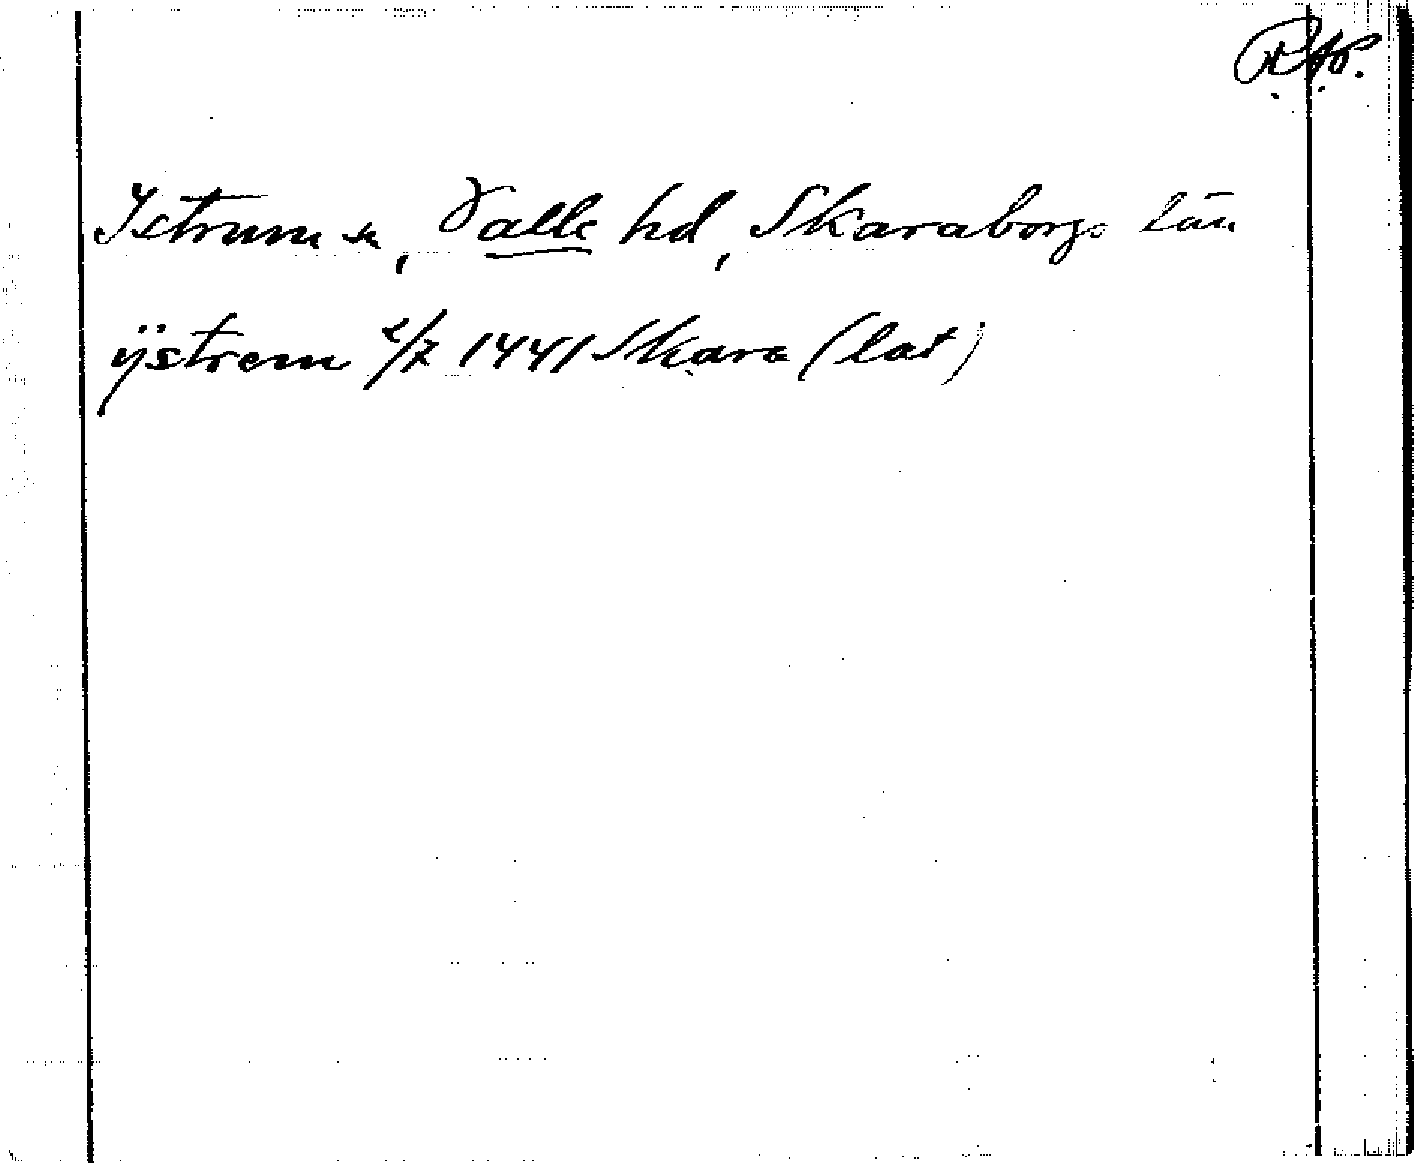 RAp.
Istrum sn, Valle hd, Skaraborgs län
ÿstrem 2/7 1441 Skara (lat)